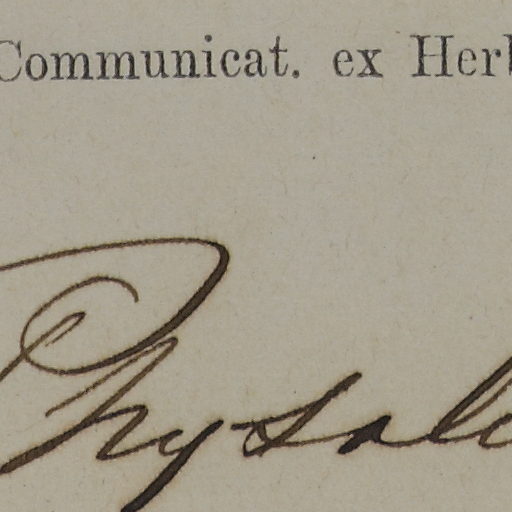 Communicat. ex Herb
Physali